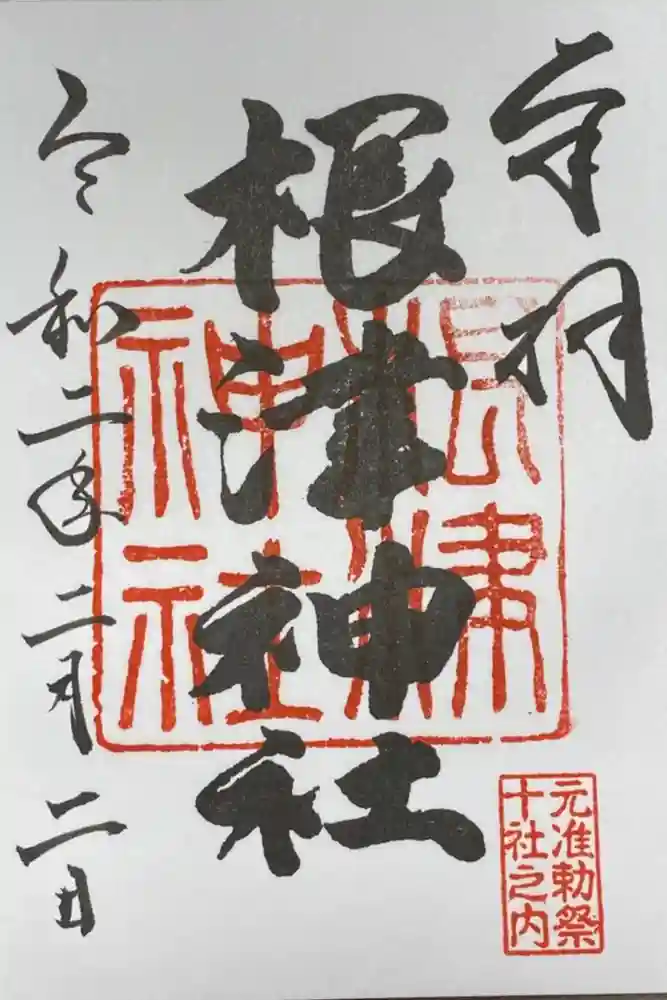 奉拝
根津神社
根津
神社
元准勅祭
十社之内
令和二年二月二日